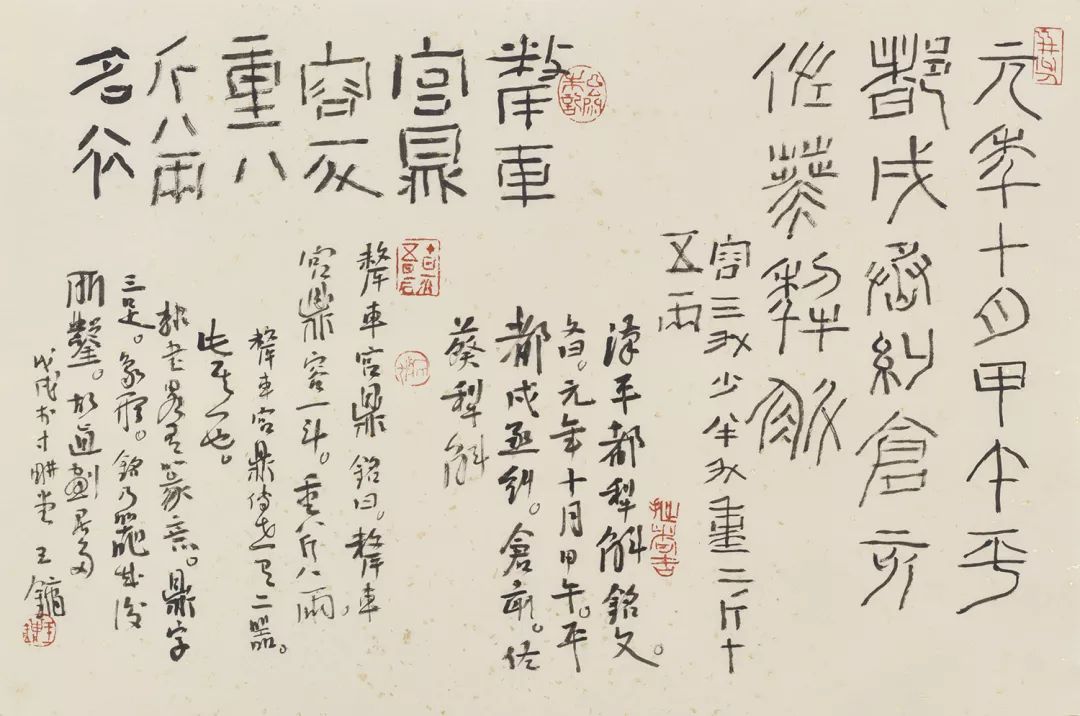 元年十月甲午平
都戍丞糾倉亥
佐葵犂斛
容三升少半升重二斤十
五兩
漢平都犁斛銘文。
曰。元年十月甲午。平
都戍丞糾。倉亥。佐
葵犁斛
犛車
宮鼎
容一斗
重八
斤八兩
名
犛車宮鼎銘曰。犛車
宮鼎容一斗。重八斤八兩。
犛車宮鼎傳世有二器。
此其一也。
隸書略有篆意。鼎字
三足。象形。銘乃器成後
所鑿。故
戊戌於寸耕堂 王鏞